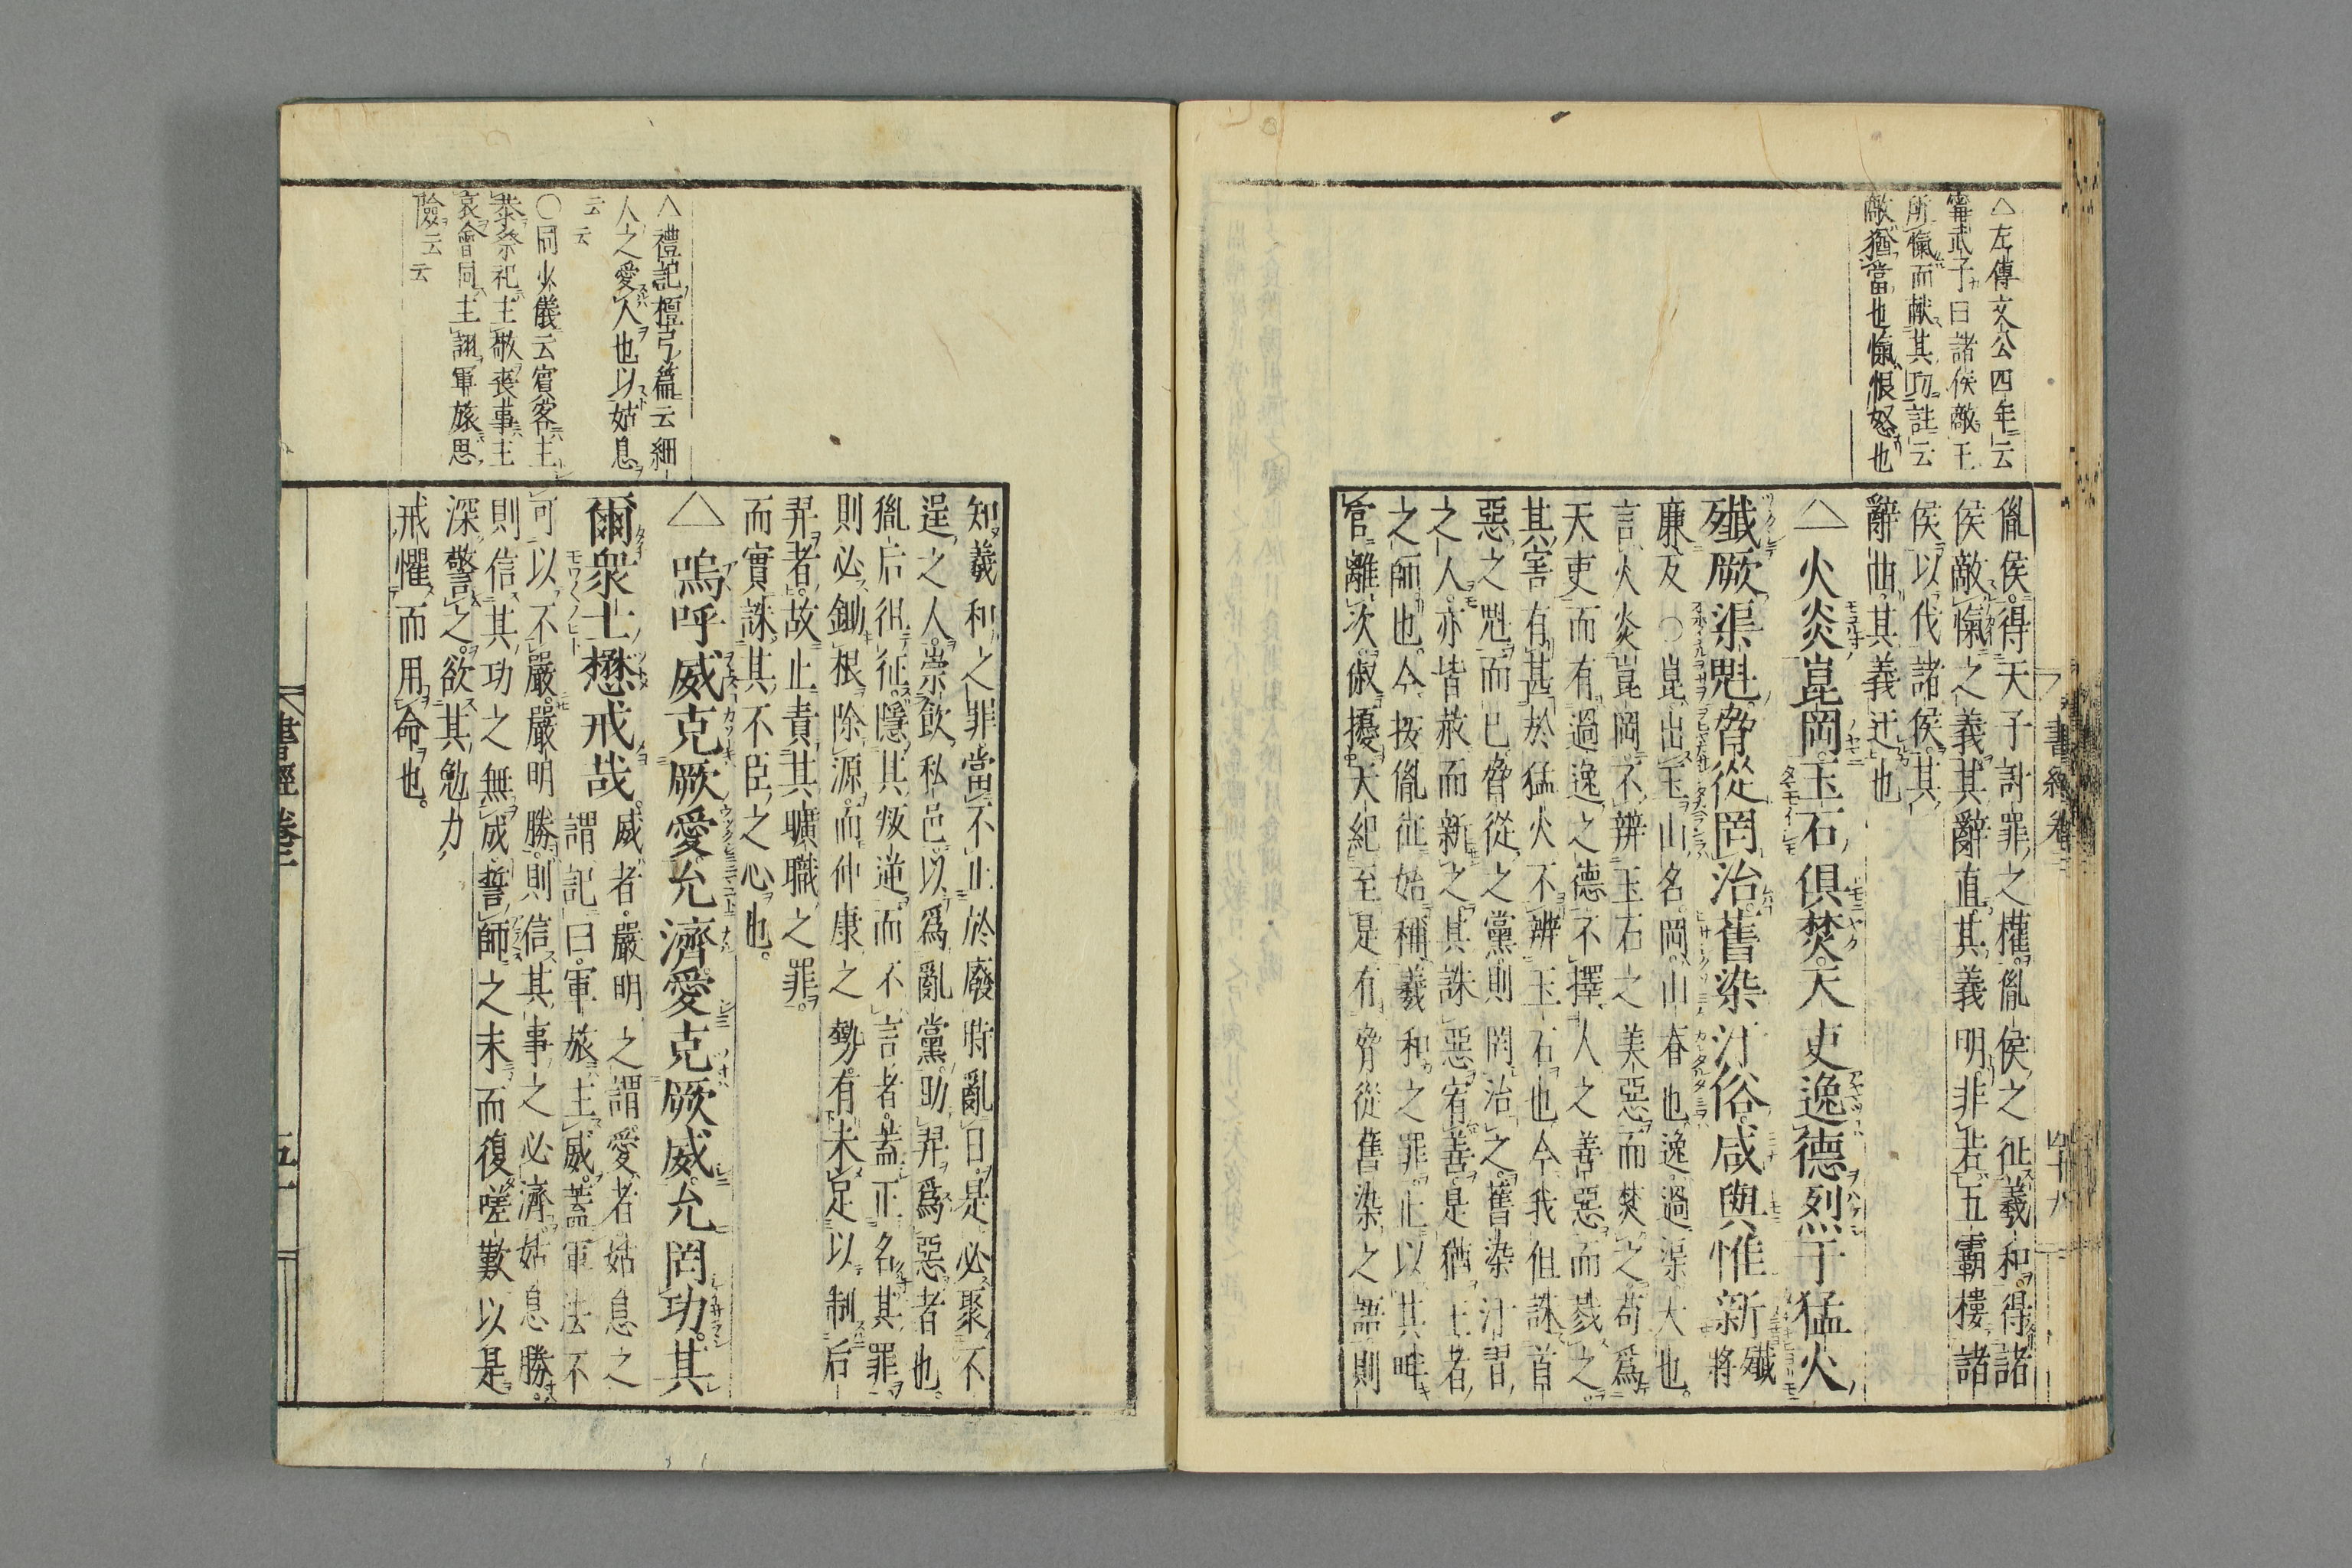 △左傳文公四年云
甯武子曰諸侯敵王
所愾而献其功註云
敵猶當也愾恨怒也
胤侯得天子討罪之權胤侯之征羲和得諸
侯敵愾之義其辭直其義明非若五霸摟諸
侯以伐諸侯其
辭曲其義迂也
△火炎崑岡玉石俱焚天吏逸德烈于猛火
殲厥渠魁脅從罔治舊染汙俗咸與惟新殲將
廉反○崑出玉山名岡山脊也逸過渠大也
言火炎崑岡不辨玉石之美惡而焚之苟爲
天吏而有過逸之德不擇人之善惡而戮之
其害有甚於猛火不辨玉石也今我但誅首
惡之魁而已脅從之黨則罔治之舊染汙習
之人亦皆赦而新之其誅惡宥善是猶王者
之師也今按胤征始稱羲和之罪止以其畔
官離次俶擾天紀至是有脅從舊染之語則
書經卷二
知羲和之罪當不止於廢時亂日是必聚不
逞之人崇飲私邑以爲亂黨助羿爲惡者也
胤后徂征隱其叛逆而不言者蓋正名其罪
則必鋤根除源而仲康之勢有未足以制后
羿者故止責其曠職之罪
而實誅其不臣之心也
△嗚呼威克厥愛允濟愛克厥威允罔功其
爾衆士懋戒哉威者嚴明之謂愛者姑息之
謂記曰軍旅主威蓋軍法不
可以不嚴嚴明勝則信其事之必濟姑息勝
則信其功之無成誓師之末而復嗟歎以是
深警之欲其勉力
戒懼而用命也
△禮記檀弓篇云細
人之愛人也以姑息
云云
○同少儀云賓客主
恭祭祀主敬喪事主
哀會同主詡軍旅思
險云云
書經卷二